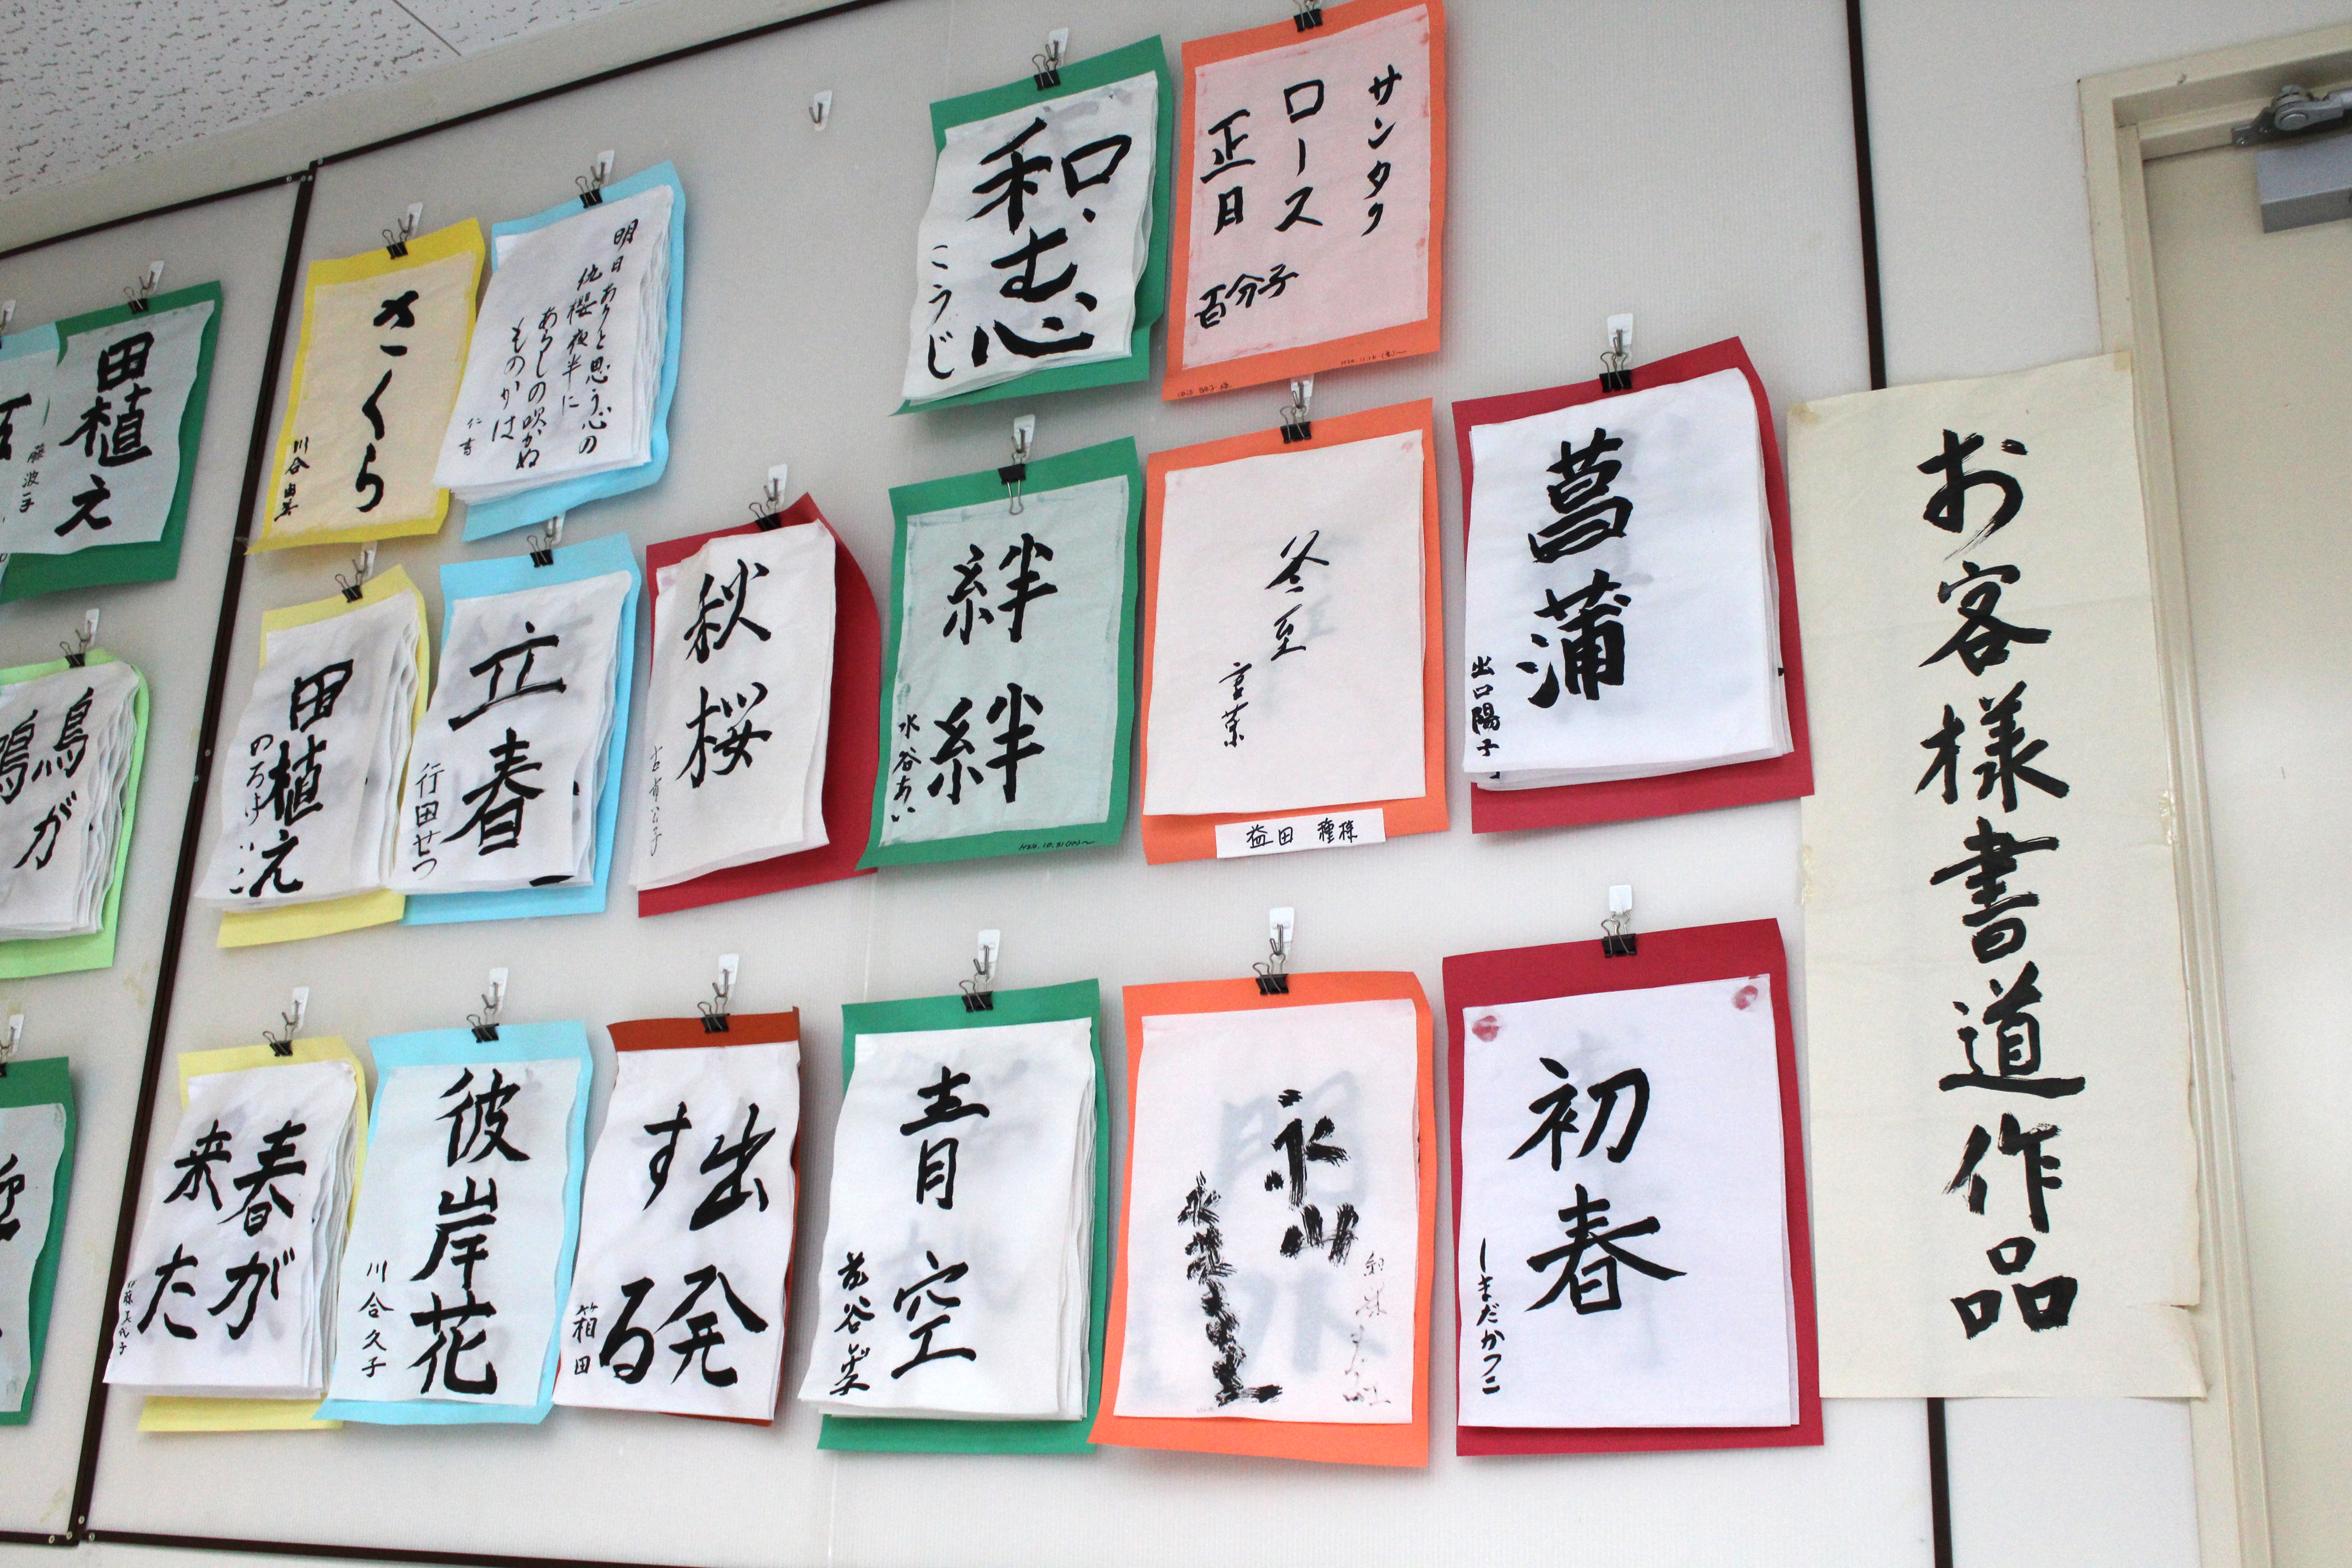 お客様書道作品
サンタク
ロース
正月
百分子
和む心
こうじ
明日ありと思う心の
仇桜夜半に
あらしの吹かぬ
ものかは
さくら
川合
田植え
菖蒲
出口陽子
冬至
益田
絆
絆
水谷あい
秋桜
立春
行田せつ
田植え
鳥が
初春
しまだかつこ
氷山
青空
出発
する
箱田
彼岸花
川合久子
春が
来た